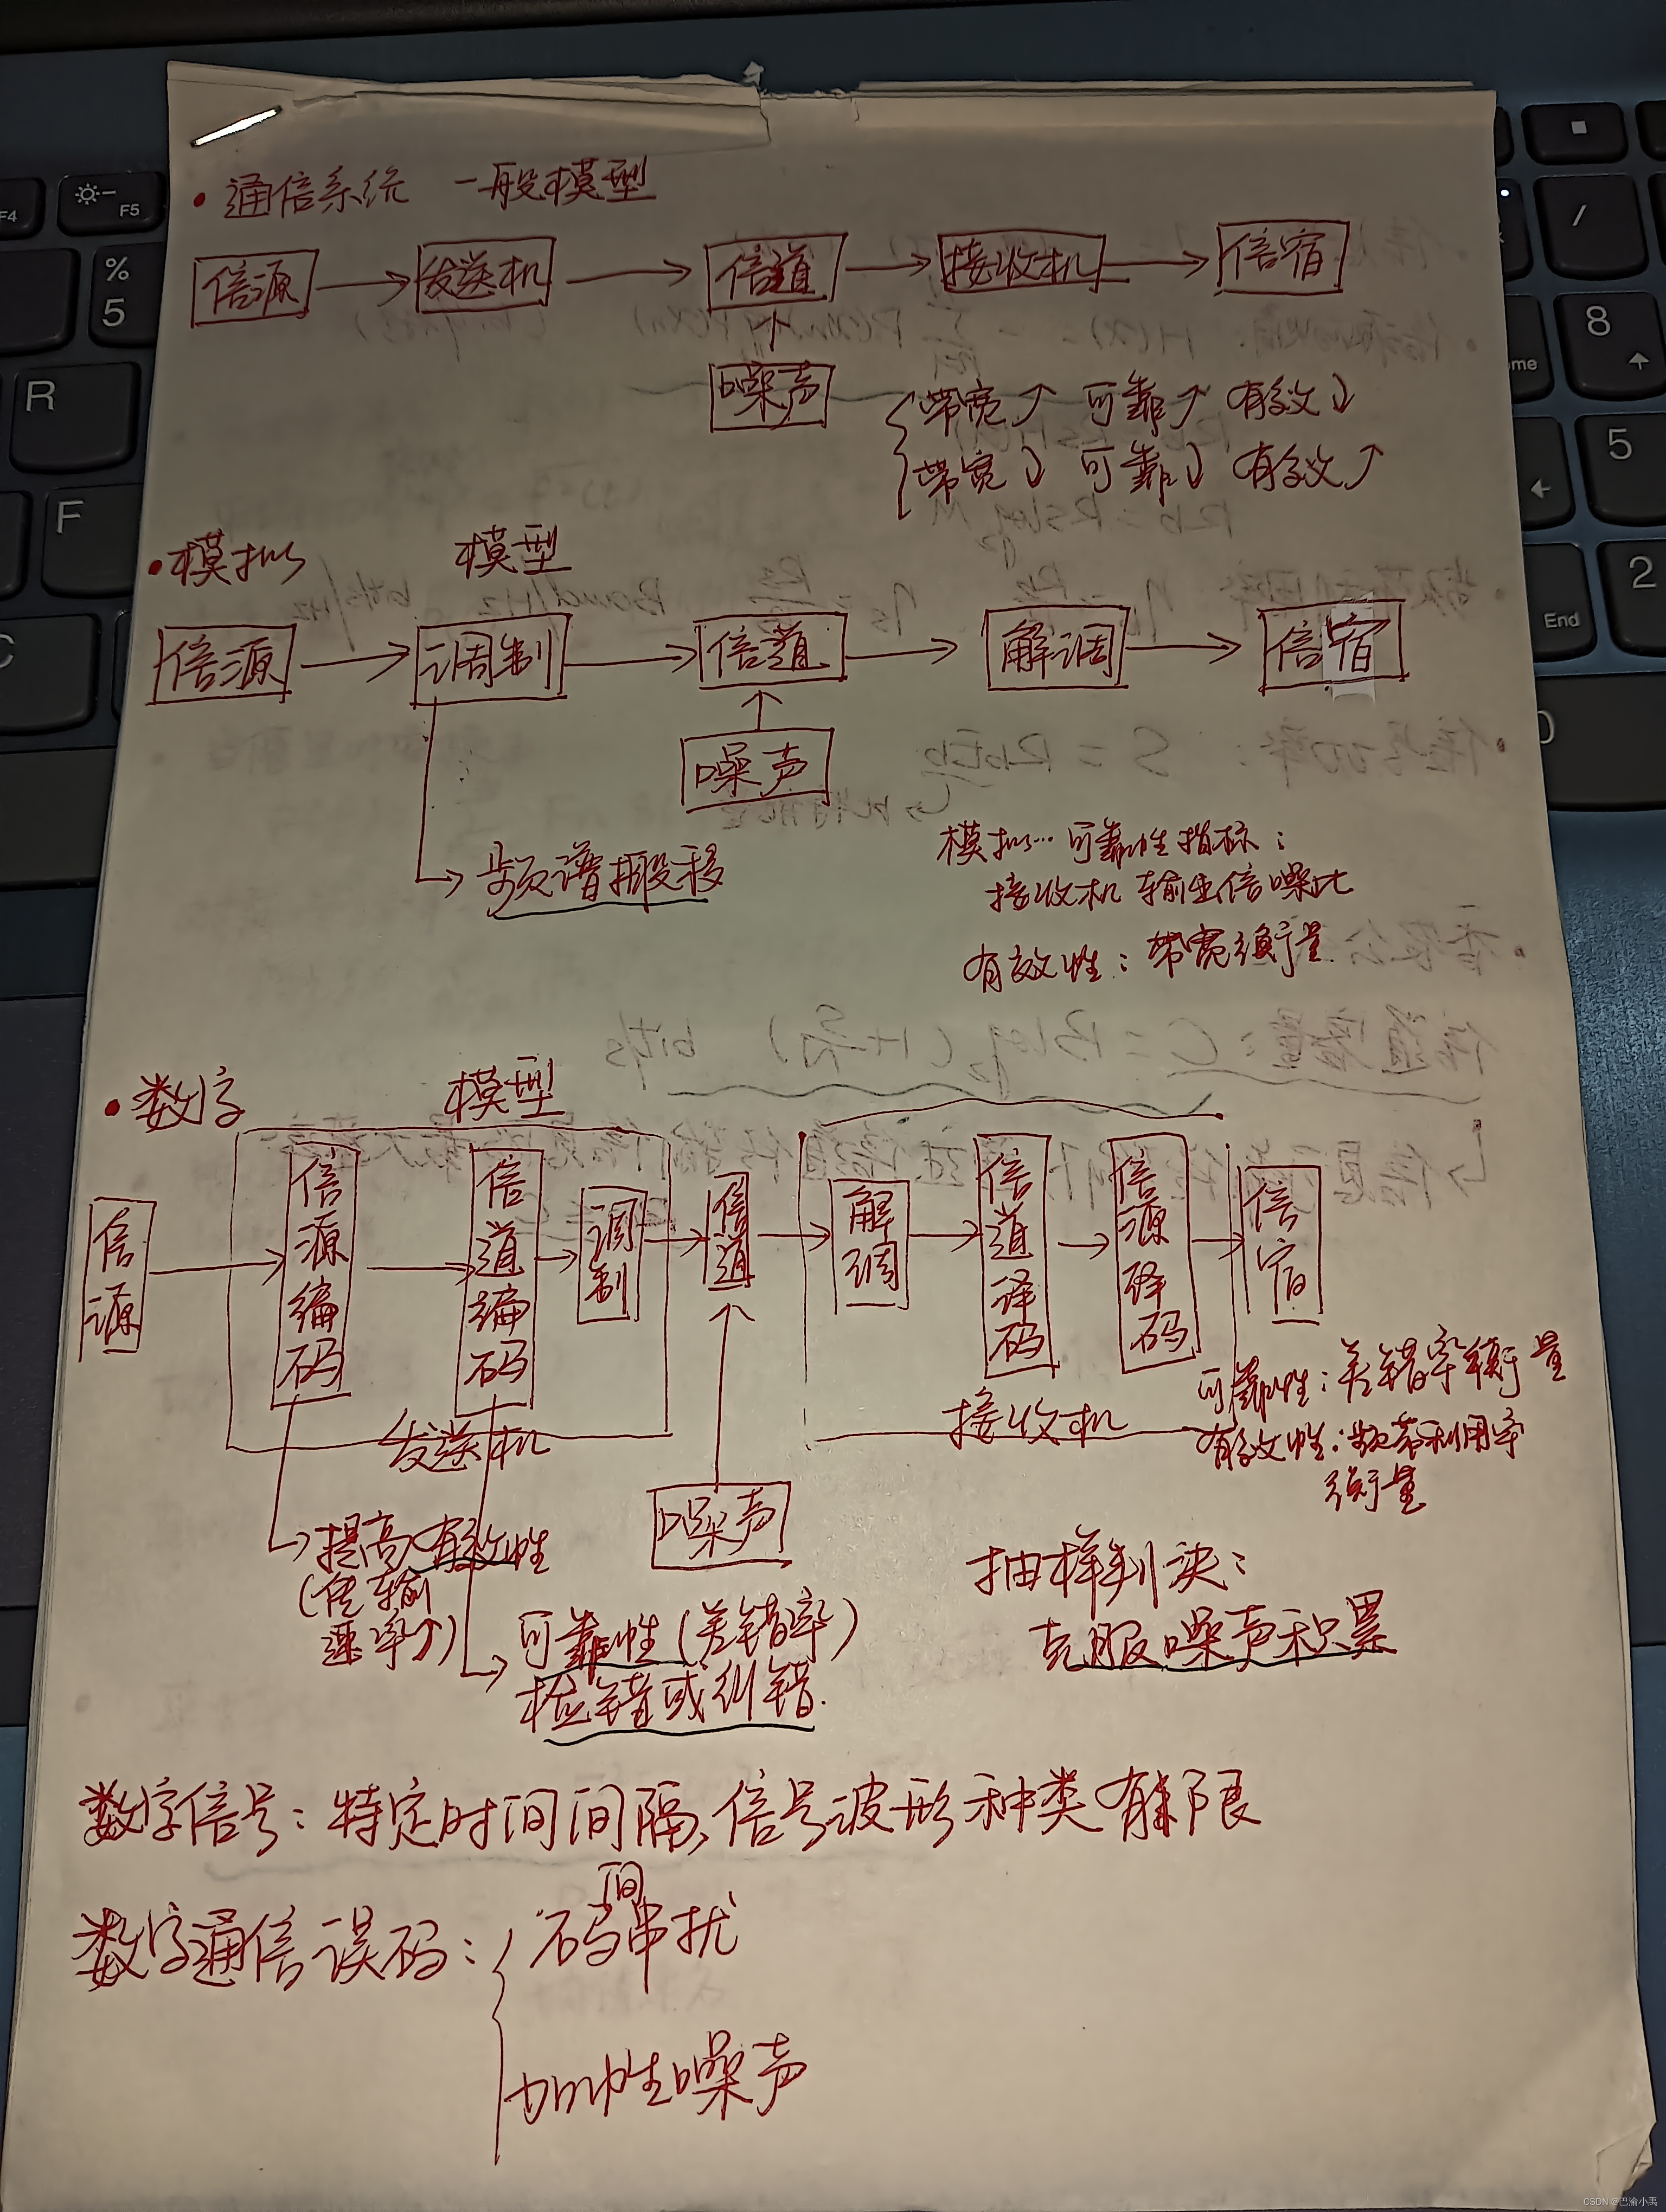 • 通信系统 一般模型
信源 → 发送机 → 信道 → 接收机 → 信宿
噪声
带宽↑ 可靠↑ 有效↓
带宽↓ 可靠↓ 有效↑
• 模拟 模型
信源 → 调制 → 信道 → 解调 → 信宿
噪声
频谱搬移
模拟… 可靠性指标：
接收机 输出信噪比
有效性：带宽衡量
• 数字 模型
信源 → 信源编码 → 信道编码 → 调制 → 信道 → 解调 → 信道译码 → 信源译码 → 信宿
发送机
接收机
可靠性：差错率衡量
有效性：频带利用率
衡量
噪声
提高有效性
(传输
速率↑)
可靠性(差错率)
检错或纠错.
抽样判决：
克服噪声积累
数字信号：特定时间间隔,信号波形种类有限
数字通信误码：
码间串扰
加性噪声
%
5
F4
F5
R
F
C
/
8
5
2
End
0
CSDN @巴渝小禹